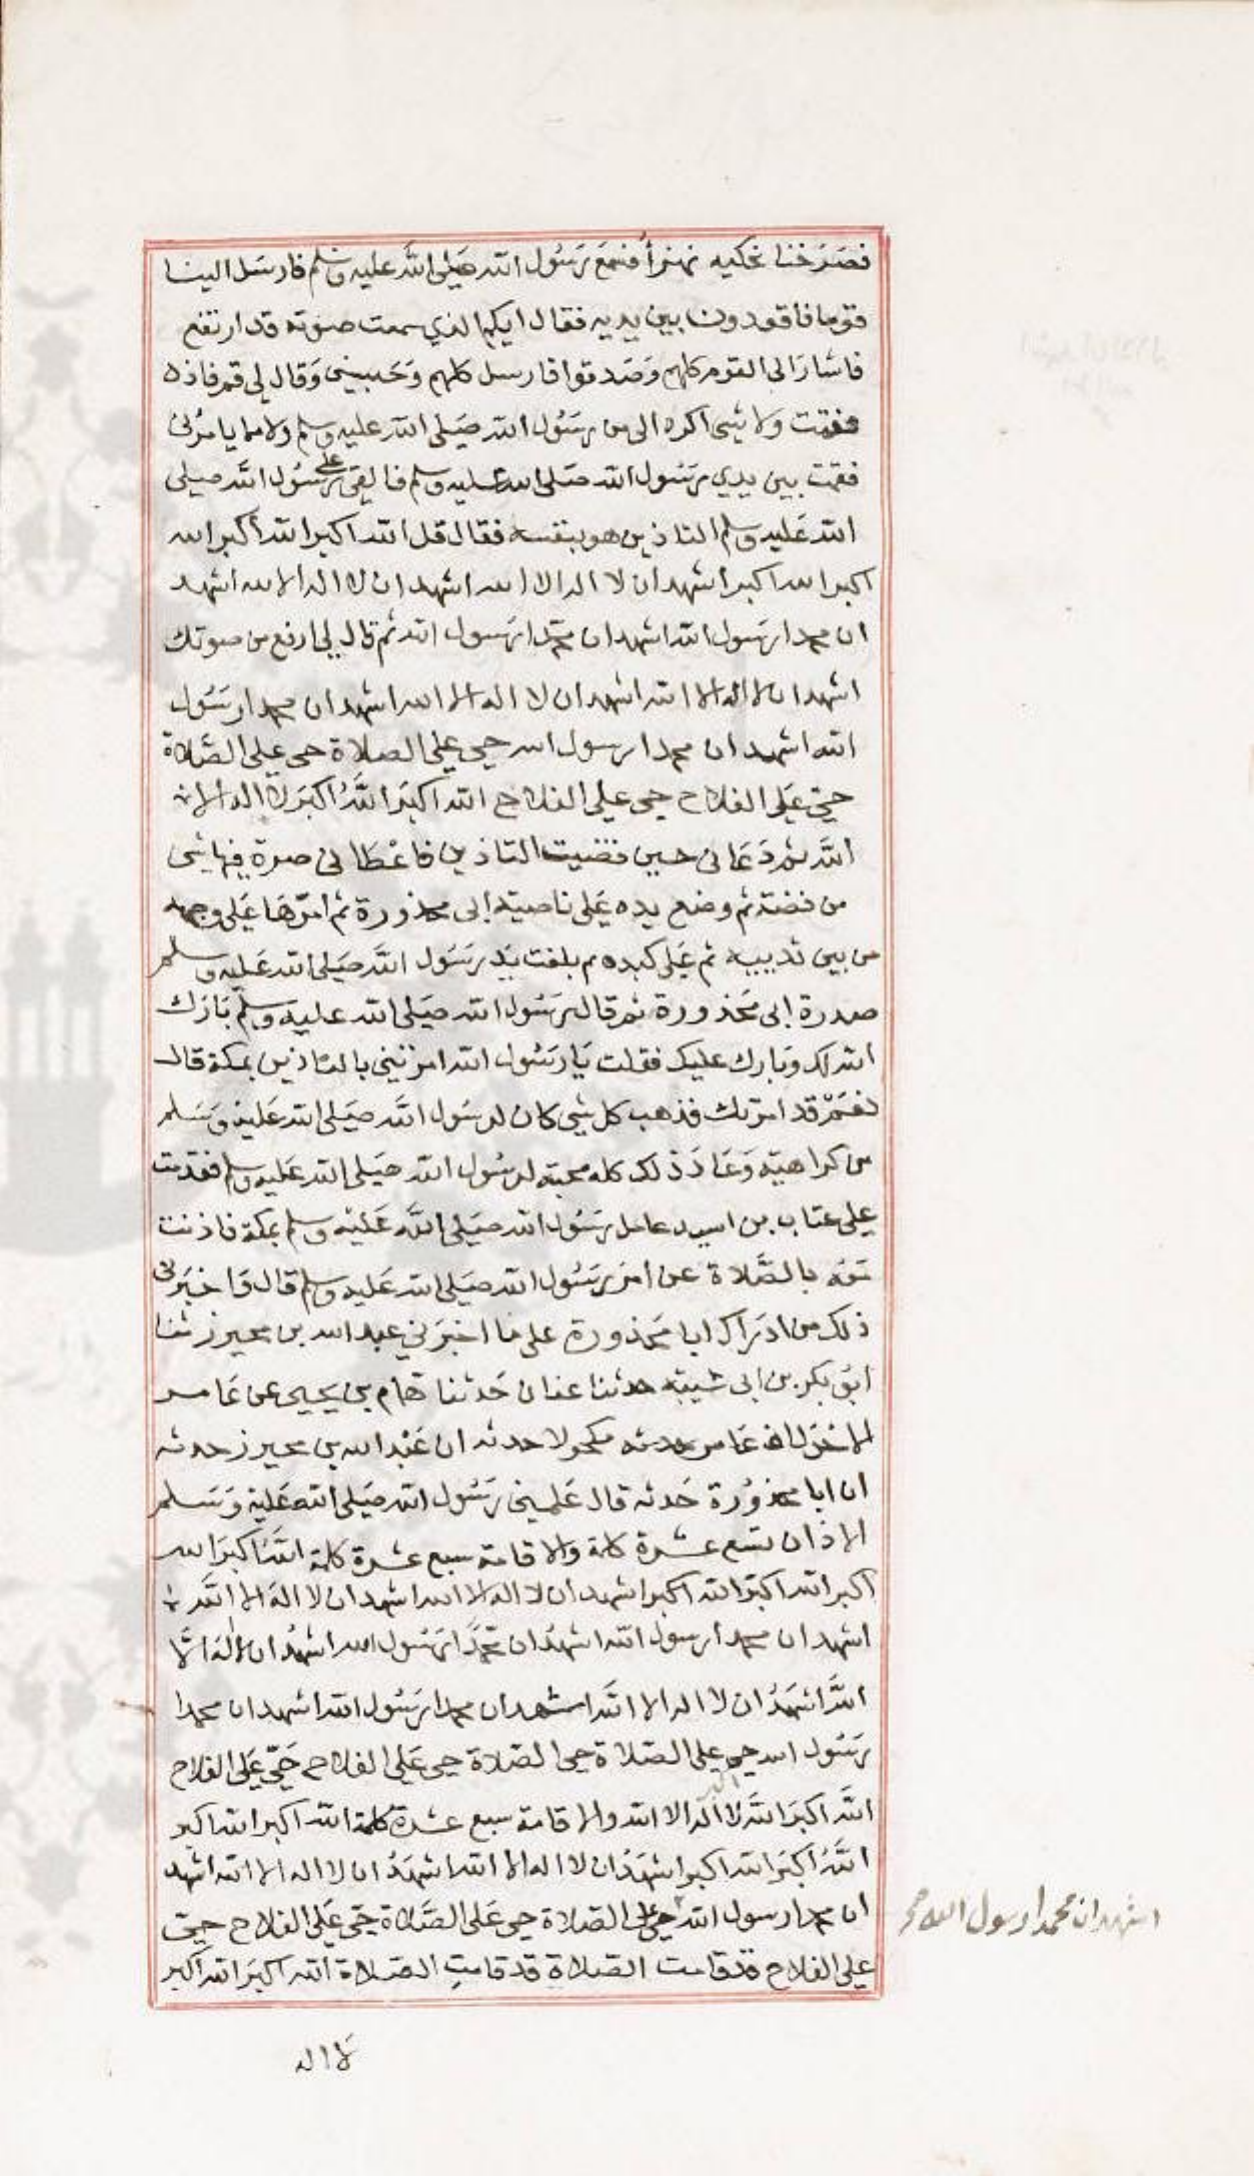 فصرخنا نحكيه نهزأ فسمع رسول الله صلى الله عليه وسلم فارسل الينا
قوما فاقعدونا بين يديه فقال ايكم الذي سمعت صوته قد ارتفع
فاشار الى القوم كلهم وصدقوا فارسل كلهم وحبسني وقال لي قم فاذن
فقمت ولا شي اكره الى من رسول الله صلى الله عليه وسلم ولا مما يامرنى
فقمت بين يدي رسول الله صلى الله عليه وسلم فالقى على رسول الله صلى
الله عليه وسلم التاذين هو بنفسه فقال قل الله اكبر الله أكبر الله
اكبر الله اكبر اشهد ان لا اله الا الله اشهد ان لا اله الا الله اشهد
ان محمدا رسول الله اشهد ان محمدا رسول الله ثم قال لي ارفع من صوتك
اشهد ان لا اله الا الله اشهد ان لا اله الا الله اشهد ان محمدا رسول
الله اشهد ان محمدا رسول الله حي على الصلاة حى على الصلاة
حي على الفلاح حى على الفلاح الله اكبر الله اكبر لا اله الا
الله ثم دعانى حين قضيت التاذين فاعطانى صرة فيها شى
من فضة ثم وضع يده على ناصية ابى محذورة ثم امرها على وجهه
من بين ثدييه ثم على كبده ثم بلغت يد رسول الله صلى الله عليه وسلم
صدرة ابى محذورة ثم قال رسول الله صلى الله عليه وسلم بارك
الله لك وبارك عليك فقلت يا رسول الله امرتني بالتاذين بمكة قال
نعم قد امرتك فذهب كل شي كان لرسول الله صلى الله عليه وسلم
من كراهية وعاد ذلك كله محبة لرسول الله صلى الله عليه وسلم فقدمت
على عتاب بن اسيد عامل رسول الله صلى الله عليه وسلم بمكة فاذنت
معه بالصلاة عن امر رسول الله صلى الله عليه وسلم قال واخبرنى
ذلك من ادرك ابا محذورة على ما اخبرني عبد الله بن محيريز ثنا
ابو بكر بن ابى شيبة حدثنا عفان حدثنا همام بن يحيى عن عامر
الاحول ان عامر حدثه مكحولا حدثه ان عبد الله بن محيريز حدثه
ان ابا محذورة حدثه قال علمني رسول الله صلى الله عليه وسلم
الاذان تسع عشرة كلمة والاقامة سبع عشرة كلمة الله اكبر الله
اكبر الله اكبر الله اكبر اشهد ان لا اله الا الله اشهد ان لا اله الا الله
اشهد ان محمدا رسول الله اشهد ان محمدا رسول الله اشهد ان لا اله الا
الله اشهد ان لا اله الا الله اشهد ان محمدا رسول الله اشهد ان محمدا
رسول الله حي على الصلاة حي الصلاة حي على الفلاح حي على الفلاح
الله اكبر الله اكبر لا اله الا الله والاقامة سبع عشرة كلمة الله اكبر الله اكبر
الله اكبر الله اكبر اشهد ان لا اله الا الله اشهد ان لا اله الا الله اشهد
ان محمدا رسول الله حي على الصلاة حي على الصلاة حي على الفلاح حي
على الفلاح قد قامت الصلاة قد قامت الصلاة الله اكبر الله اكبر
اشهد ان محمدا رسول الله صح
لا اله